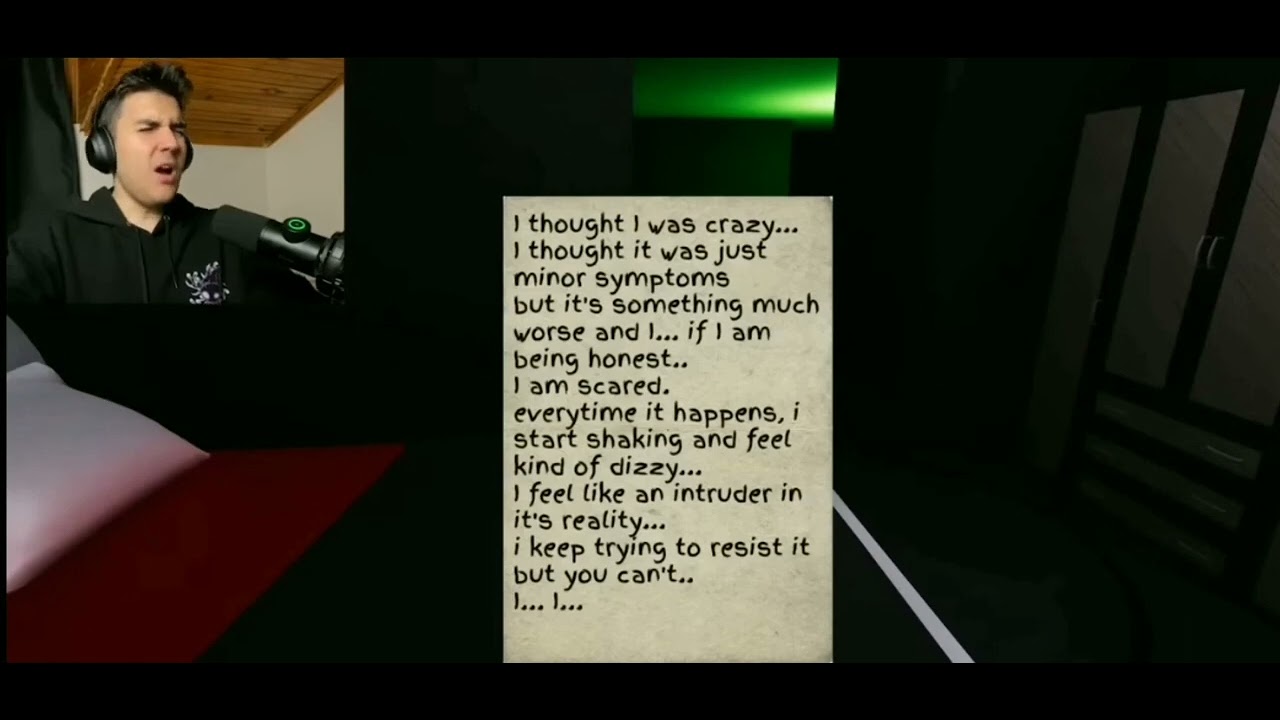 I thought I was crazy...
I thought it was just
minor symptoms
but it's something much
worse and I... if I am
being honest..
I am scared.
everytime it happens, i
start shaking and feel
kind of dizzy...
I feel like an intruder in
it's reality...
i keep trying to resist it
but you can't..
I... I...